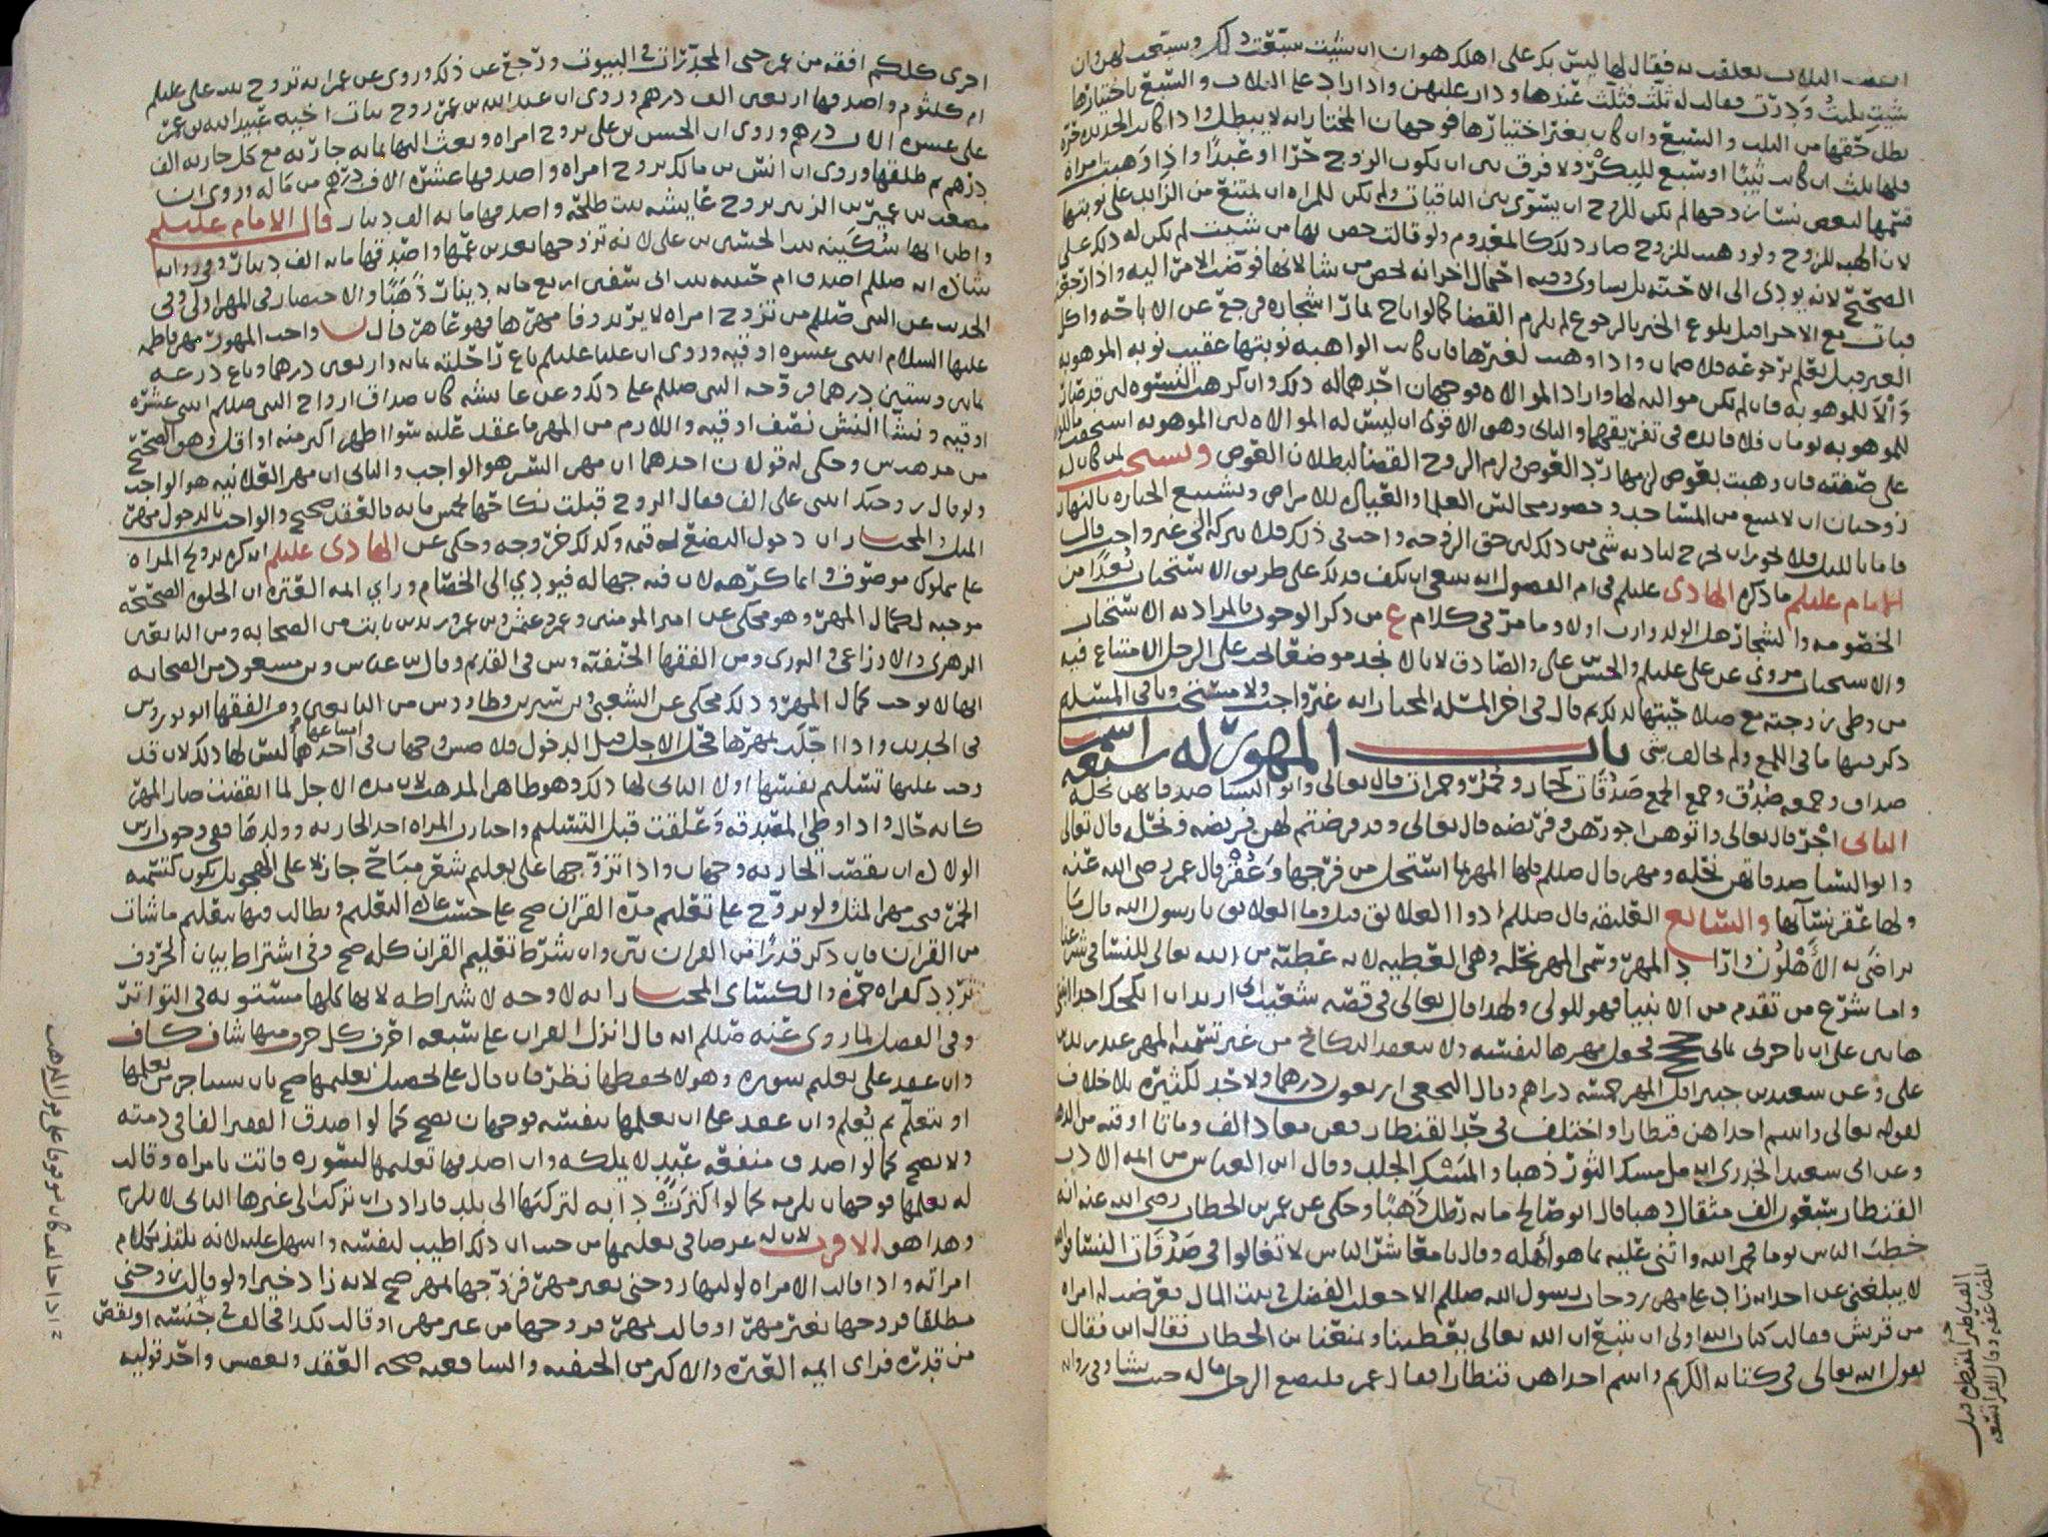 فقال لها ليس بك على اهلك هوان ان شئت سبعت
شيت ثلثت ودرت فقالت له ثلث فثلث عندها ودار عليهن واذا زاد على الثلاث والسبع باختيارها
بطل حقها من الثلث والسبع وان كان بغير اختيارها فوجهان المختار انه لا يبطل واذا كانت الجديده حره
فلها ثلث ان كانت ثيبا او سبع للبكر ولا فرق بين ان يكون الزوج حرا او عبدا واذا وهبت امراه
قسمها لبعض نساء زوجها لم يكن للزوج ان يسوي بين الباقيات ولم يكن للمراه ان تمتنع من الزائد على نوبتها
لان الهبه للزوج ولو وهبت للزوج صار ذلك كالمعدوم ولو قالت خص بها من شيت لم يكن له ذلك على
الصحيح لانه يودي الى الاحنه بل يساوي وفيه احتمال اخر انه يخص من شا لانها فوضت الامر اليه واذا رجعت
فبات مع الاخرى قبل بلوغ الخبر بالرجوع لم يلزم القضا كما لو اباح ثمار اشجاره فرجع عن الاباحه واكل
الغير قبل يعلم برجوعه فلا ضمان واذا وهبت لغيرها فان كانت الواهبه نوبتها عقيب نوبه الموهوبه
والا للموهوبه فان لم تكن مواليه لها واراد الموالاه فوجهان احدهما له ذلك وان كرهت النسوه
للموهوبه يومان فلا فائده في تفريقهما والثاني وهو الاقوى ان ليس له الموالاه لان الموهوبه استحقت
على صفته فان وهبت بعوض لزمها رد العوض ولزم الزوج القضا لبطلان العوض ويستحب لمن كان له
زوجتان ان لا يمنع من المساجد وحضور مجالس العلما والعياده للامراض وتشييع الجنازه بالنهار
فاما بالليل فلا يجوز ان يخرج لتاديه شي من ذلك لان حق الزوجه واجب في ذلك فلا يتركه الى غير واجب قال
الامام عليلم ما ذكره الهادي عليلم في ام الفصول انه ينبغي ان يكف فذلك على طريق الاستحباب بعدا من
الخصومه والشجار هل الولد وارث اولا وما مر في كلام ع من ذكر الوجوب فالمراد به الاستحباب
والاستحباب مروي عن علي عليلم والحسن بن علي والصادق لانا لا نجد موضعا يجب على الرجل الامتناع فيه
من وطي زوجته مع صلاحيتها لذلك ثم قال في اخر المسله المختار انه غير واجب ولا مستحب وباقي المسله
ذكر فيها ما في اللمع ولم يخالف شي باب المهور له اسما سبعه
صداق وجمعه صدق وجمع الجمع صدقات كخمار وخمر وخمرات قال تعالى واتوا النسا صدقاتهن نحله
الثاني اجر قال تعالى واتوهن اجورهن وفريضه قال تعالى وقد فرضتم لهن فريضه ونحله قال تعالى
واتوا النسا صدقاتهن نحله ومهر قال صللم فلها المهر بما استحل من فرجها وعقر قال عمر رضي الله عنه
ولها عقر نسائها والسابع العليقه قال صللم ادوا العلائق قيل وما العلائق يا رسول الله قال ما
تراضى به الاهلون واذا المهر وسمي المهر نحله وهي العطيه لانه عطيه من الله تعالى للنسا في شرعنا
واما شرع من تقدم من الانبيا فهو للولي ولهذا قال تعالى في قصه شعيب اني اريد ان انكحك احدى ابنتي
هاتين على ان تاجرني ثماني حجج فجعل مهرها لنفسه ولا ينعقد النكاح من غير تسميه المهر عند زيد بن
علي وعن سعيد بن جبير اقل المهر خمسه دراهم وقال النخعي اربعون درهما ولا حد لكثيره بلا خلاف
لقوله تعالى واتيتم احداهن قنطارا واختلف في حد القنطار فعن معاذ الف ومائتا اوقيه من الذهب
وعن ابي سعيد الخدري انه مل مسك الثور ذهبا والمسك الجلد وقال ابن العباس من المه الاذن
القنطار سبعون الف مثقال ذهبا قال ابو صالح مايه رطل ذهبا وحكي عن عمر بن الخطاب رضي الله عنه انه
خطب الناس يوما فحمد الله واثنى عليه بما هو اهله وقال يا معاشر الناس لا تغالوا في صدقات النسا فوالله
لا يبلغني عن احد انه زاد على مهر زوجات رسول الله صللم الا جعلت الفضل في بيت المال فعرضت له امراه
من قريش فقالت كتاب الله اولى ان يتبع ان الله تعالى يعطينا وتمنعنا يا ابن الخطاب فقال اين فقالت
يقول الله تعالى في كتابه الكريم واتيتم احداهن قنطارا فقال عمر فليصنع الرجل ماله حيث يشا وفي روايه
اخرى كلكم افقه من عمر حتى المخدرات في البيوت ورجع عن ذلك وروي عن عمر انه تزوج بنت علي عليلم
ام كلثوم واصدقها اربعين الف درهم وروي ان عبد الله بن عمر زوج بنات اخيه عبيد الله بن عمر
على عشره الاف درهم وروي ان الحسن بن علي تزوج امراه وبعث اليها بمايه جاريه مع كل جاريه الف
درهم ثم طلقها وروي ان انس بن مالك تزوج امراه واصدقها عشره الاف درهم من ماله وروي ان
مصعب بن الزبير تزوج عايشه بنت طلحه واصدقها مايه الف دينار قال الامام عليلم
واظن انها سكينه بنت الحسين بن علي لانه تزوجها بعد بن عمها واصدقها مايه الف دينار وفي روايه
شاذه انه صللم اصدق ام حبيبه بنت ابي سفين اربع مايه دينار ذهبا والاختصار في المهر اولى وفي
الحديث عن النبي صللم من تزوج امراه لا يريد وفا مهرها فهو عاهر قال واحب المهور مهر فاطمه
عليها السلام اثنى عشره اوقيه وروي ان عليا عليلم باع راحلته بمايه واربعين درهما وباع درعه
بمايتين وستين درهما فزوجه النبي صللم على ذلك وعن عايشه كان صداق ازواج النبي صللم اثنى عشره
اوقيه ونشا النش نصف اوقيه واللازم من المهر ما عقد عليه سوا اظهر اكثر منه او اقل وهو الصحيح
من مذهب س وحكي له قولان احدهما ان مهر السر هو الواجب والثاني ان مهر العلانيه هو الواجب
ولو قال زوجتك ابنتي على الف فقال الزوج قبلت نكاحها بخمس مايه فالعقد صحيح والواجب بالدخول مهر
المثل والمختار ان دخول البضع له قيمه وكذلك خروجه وحكي عن الهادي عليلم انه كره تزويج المراه
على مملوك موصوف وانما كرهه لان فيه جهاله فيودي الى الخصام وراي ايمه العتره ان الخلوه الصحيحه
موجبه لكمال المهر وهو محكي عن امير المومنين وعمر وعثمن وبن عمر وزيد بن ثابت من الصحابه ومن التابعين
الزهري والاوزاعي والثوري ومن الفقها الحنفيه وس في القديم وقال بن عباس وبن مسعود من الصحابه
انها لا توجب كمال المهر وذلك محكي عن الشعبي وبن سيرين وطاووس من التابعين ومن الفقها ابو ثور وس
في الجديد واذا اجلت مهرها فحل الاجل قبل الدخول فلا ص وجهان في احدهما ليس لها ذلك لان قد
امتناعها
وجب عليها تسليم نفسها اولا الثاني لها ذلك وهو ظاهر المذهب لان مده الاجل لما انقضت صار المهر
كانه حال واذا وطي المصدقه وعلقت قبل التسليم واختارت المراه اخذ الجاريه وولدها ففي وجوب ارش
الولاده ان نقصت الجاريه وجهان واذا تزوجها على تعليم شعر مباح جاز لا على الهجو بل يكون كتسميه
الخمر في مهر المثل ولو تزوج على تعليم مده القران صح على حسب عاده التعليم وتطالب فيها بتعليم ما شات
من القران فان ذكر قدرا من القران بين وان شرط تعليم القران كله صح وفي اشتراط بيان الحروف
تردد كقراه حمزه والكسائي المختار انه لا وجه لاشتراطه لانها كلها مستويه في التواتر
وفي الفضل لما روي عنه صللم انه قال انزل القران على سبعه احرف كل حرف منها شاف كاف
وان عقد على تعليم سوره وهو لا يحفظها نظر فان قال على تحصيل تعليمها صح بان يستاجر من يعلمها
او يتعلم ثم يعلم وان عقد على ان يعلمها بنفسه فوجهان يصح كما لو اصدق الفقير الفا في ذمته
ولا يصح كما لو اصدق منفعه عبد لا يملكه وان اصدقها تعليمها لسوره فاتت بامراه وقالت
له يعلمها فوجهان يلزمه كما لو اكترت دابه لتركبها الى بلد فارادت ان تركب الى غيرها الثاني لا يلزم
وهذا هو الاقرب لان له غرضا في تعليمها من حيث ان ذلك اطيب لنفسه واسهل عليه لانه يلتذ بكلام
امراته واذا قالت الامراه لوليها زوجني بغير مهر فزوجها بمهر صح لانه زاد خيرا ولو قالت زوجني
مطلقا فزوجها بغير مهر او قالت بمهر فزوجها من غير مهر او قالت بكذا فخالف في جنسه او نقص
من قدره فراى ايمه العتره والاكثر من الحنفيه والشافعيه صحه العقد وبعض واحد قوليه